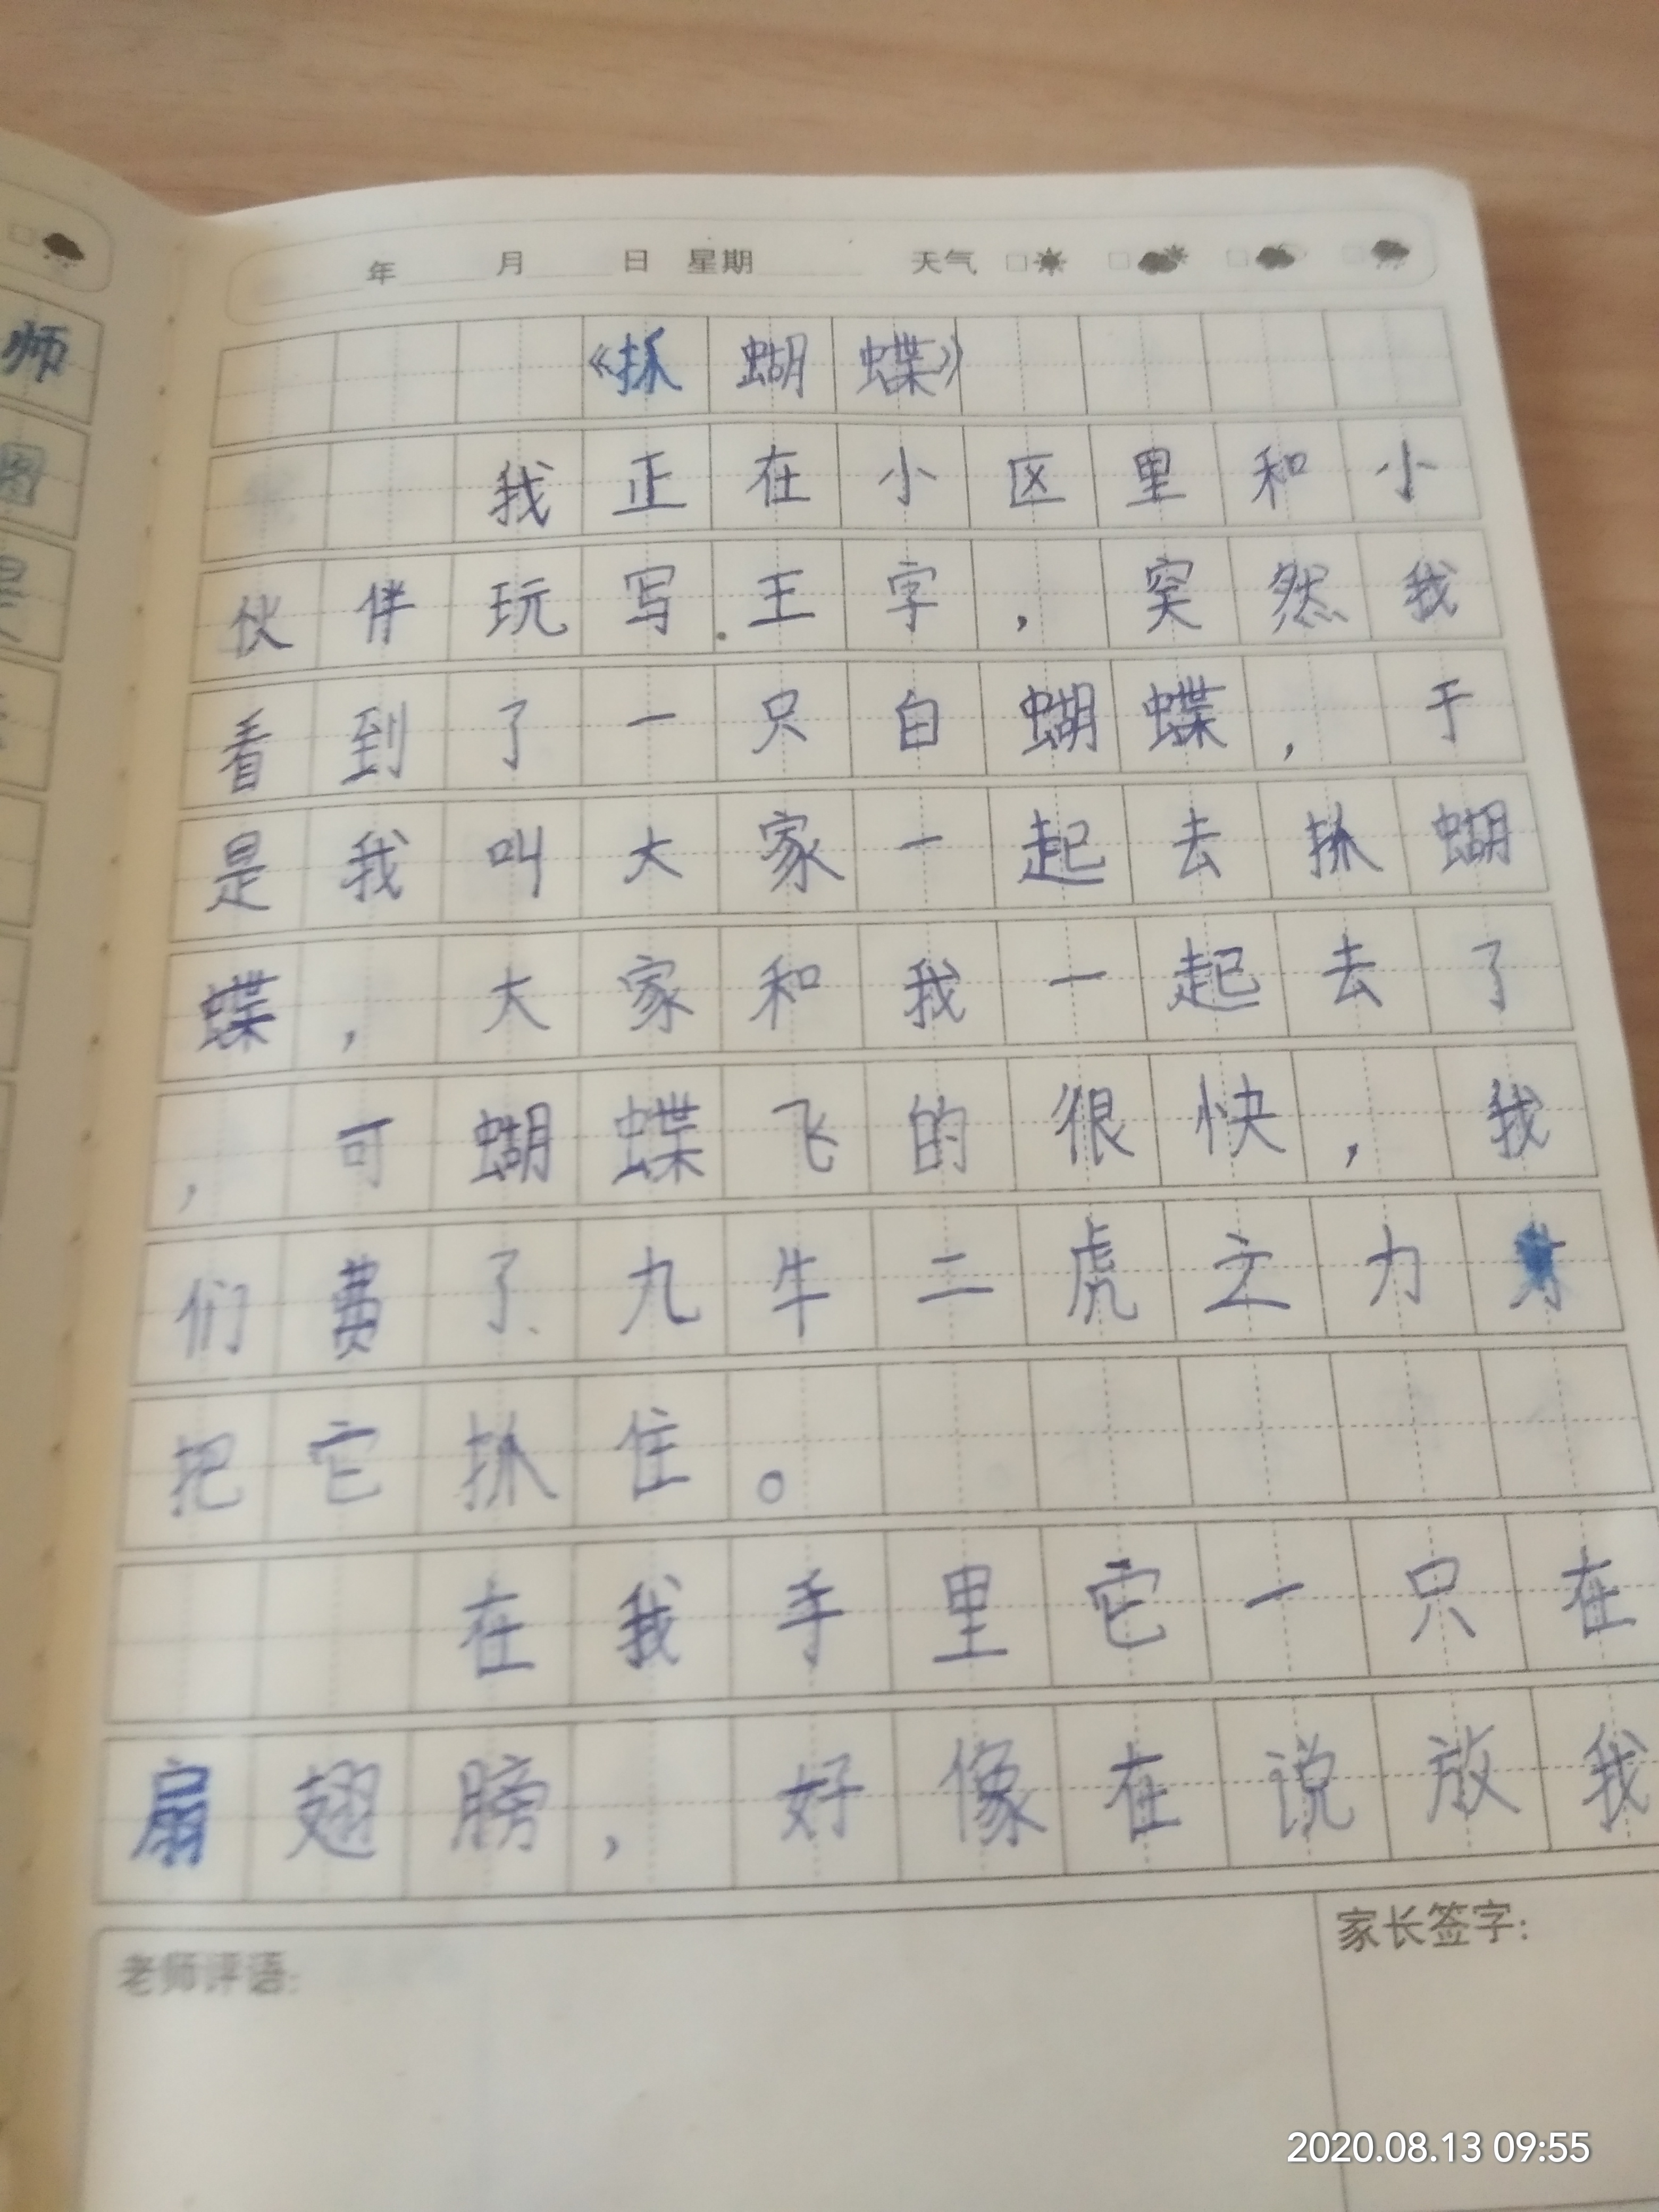 年 月 日 星期 天气
《抓蝴蝶》
我正在小区里和小
伙伴玩写王字，突然我
看到了一只白蝴蝶，于
是我叫大家一起去抓蝴
蝶，大家和我一起去了
，可蝴蝶飞的很快，我
们费了九牛二虎之力才
把它抓住。
在我手里它一只在
扇翅膀，好像在说放我
老师评语：
家长签字：
师
2020.08.13 09:55